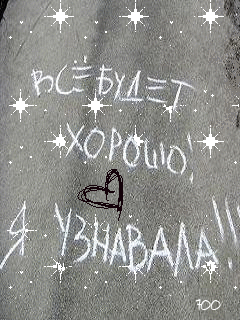 ВСЁ БУДЕТ
ХОРОШО!
Я УЗНАВАЛА!!
700